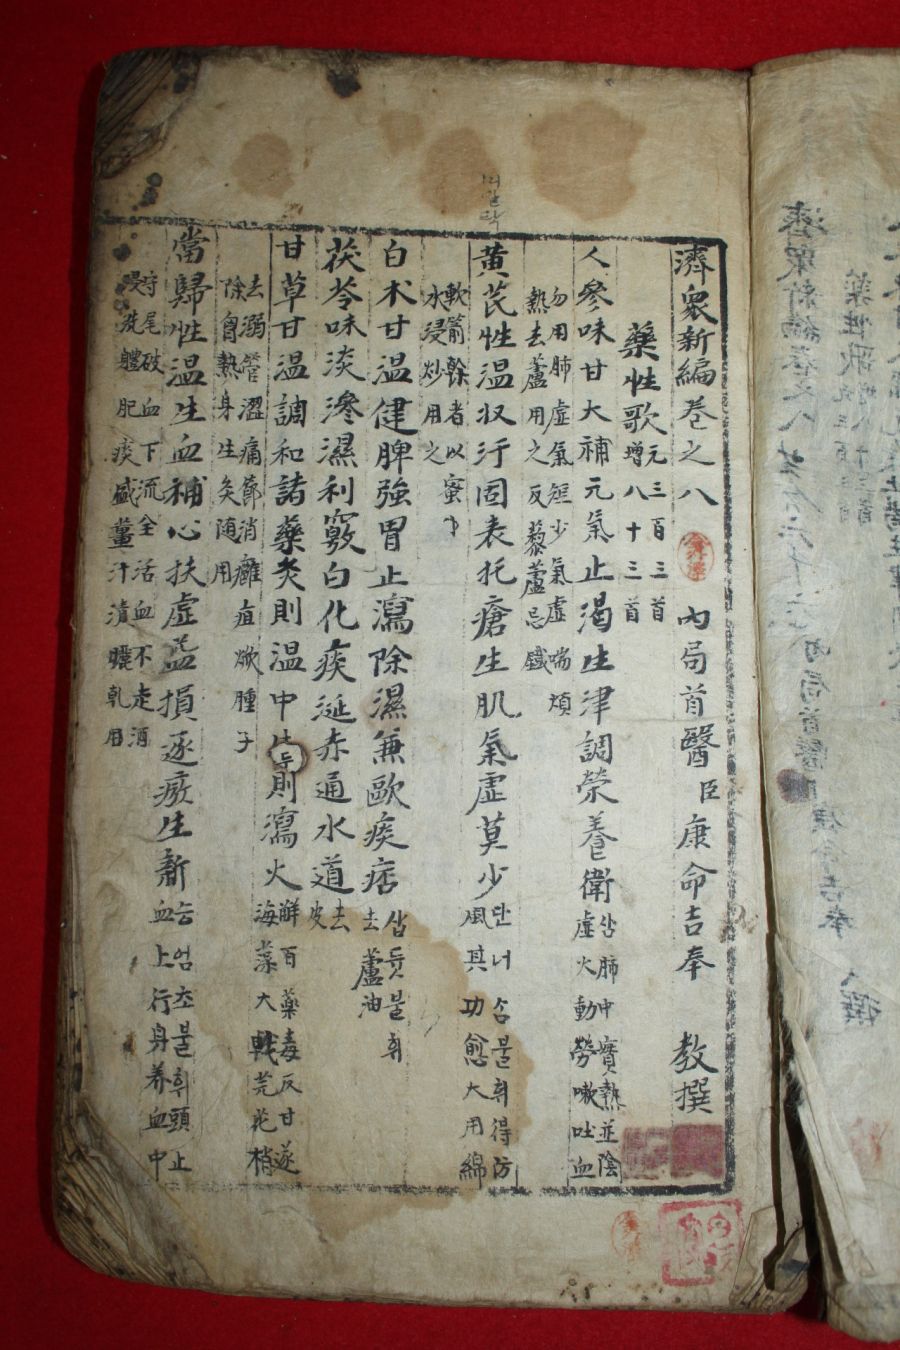 濟衆新編卷之八 內局首醫臣康命吉奉 教撰
藥性歌 元三百三首 增八十三首
人參味甘大補元氣止渴生津調榮養衛 삼肺中實熱並陰虛火動勞嗽吐血
勿用肺虛氣短少氣虛喘煩熱去蘆用之反藜蘆忌鐵
黃芪性温收汗固表托瘡生肌氣虛莫少 단너삼불휘得防風其功愈大用綿
軟箭幹者以蜜水浸炒用之
白朮甘温健脾強胃止瀉除濕兼歐痰痞 삽듓불휘去蘆油
茯苓味淡滲濕利竅白化痰涎赤通水道 去皮
甘草甘温調和諸藥炙則温中生則瀉火 解百藥毒反甘遂海藻大戟芫花梢
去溺管澀痛節消癰疽焮腫子除胷熱身生炙随用
當歸性温生血補心扶虛益損逐瘀生新 승엄초불휘頭止血上行身養血中
守尾破血下流全活血不走酒浸洗體肥痰盛薑汁漬曬乾用